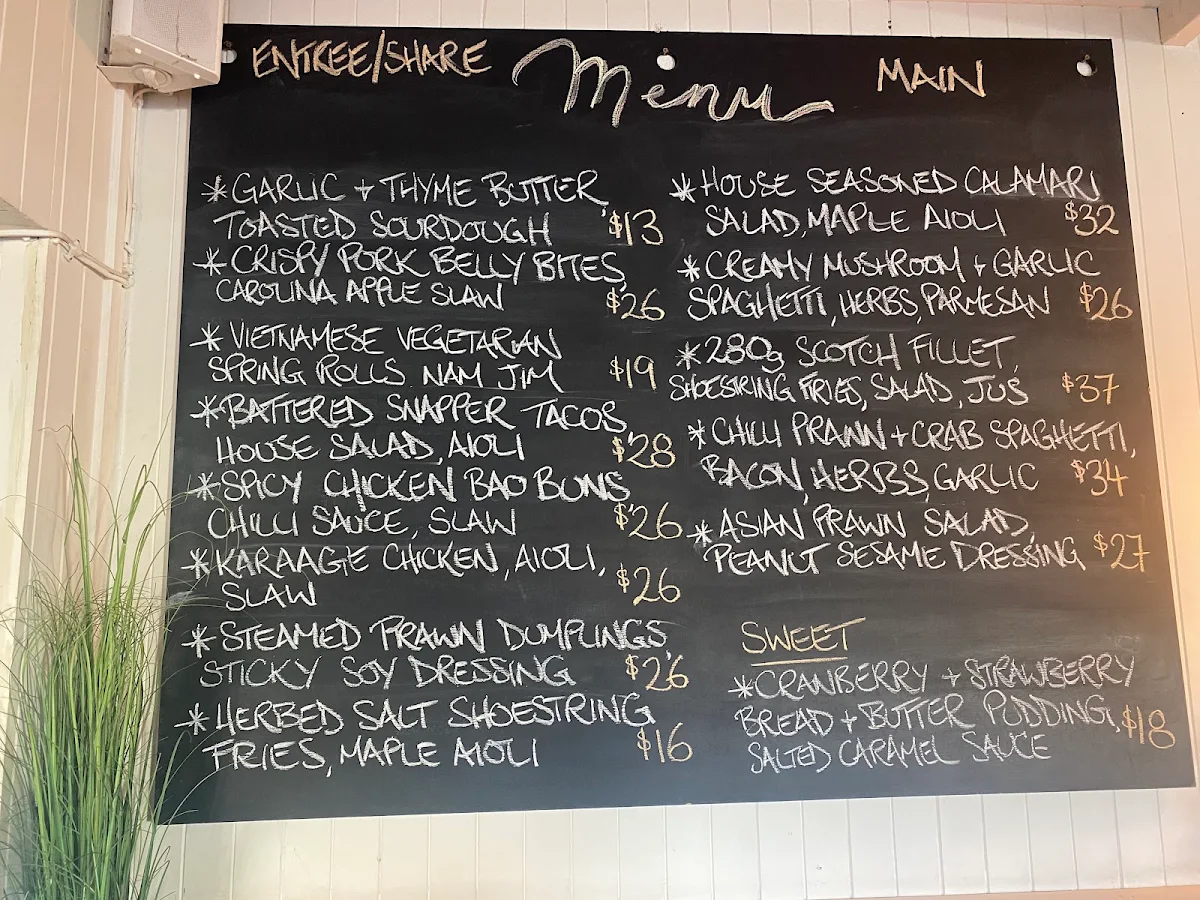 ENTREE/SHARE
Menu
MAIN
*GARLIC + THYME BUTTER,
TOASTED SOURDOUGH $13
*CRISPY PORK BELLY BITES,
CAROLINA APPLE SLAW $26
*VIETNAMESE VEGETARIAN
SPRING ROLLS NAM JIM $19
*BATTERED SNAPPER TACOS,
HOUSE SALAD, AIOLI $28
*SPICY CHICKEN BAO BUNS
CHILLI SAUCE, SLAW $26
*KARAAGE CHICKEN, AIOLI,
SLAW $26
*STEAMED PRAWN DUMPLINGS,
STICKY SOY DRESSING $26
*HERBED SALT SHOESTRING
FRIES, MAPLE AIOLI $16
*HOUSE SEASONED CALAMARI
SALAD, MAPLE AIOLI $32
*CREAMY MUSHROOM + GARLIC
SPAGHETTI, HERBS, PARMESAN $26
*280g SCOTCH FILLET,
SHOESTRING FRIES, SALAD, JUS $37
*CHILLI PRAWN + CRAB SPAGHETTI,
BACON, HERBS, GARLIC $34
*ASIAN PRAWN SALAD,
PEANUT SESAME DRESSING $27
SWEET
*CRANBERRY + STRAWBERRY
BREAD + BUTTER PUDDING, $18
SALTED CARAMEL SAUCE